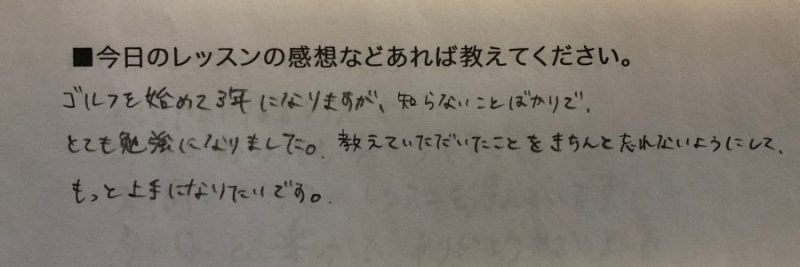 ■今日のレッスンの感想などあれば教えてください。
ゴルフを始めて3年になりますが、知らないことばかりで、
とても勉強になりました。教えていただいたことをきちんと忘れないようにして、
もっと上手になりたいです。